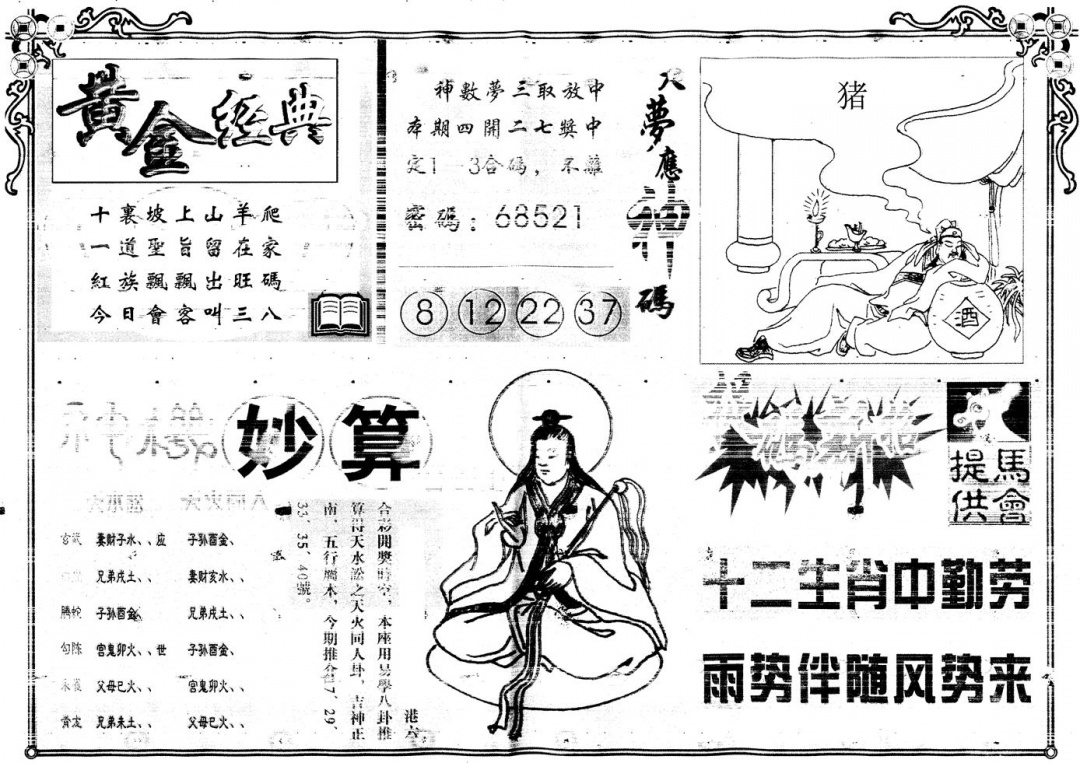 黄金經典
十裏坡上山羊爬
一道聖旨留在家
紅族飄飄出旺碼
今日會客叫三八
神數夢三取放中
本期四開二七獎中
定1—3合碼，不離
密碼：68521
8 12 22 37
天夢應神碼
猪
酒
妙算
玄武 妻財子水、、应 子孙酉金、
兄弟戌土、、 妻財亥水、、
騰蛇 子孙酉金、 兄弟戌土、、
勾陈 官鬼卯火、、世 子孙酉金、
朱雀 父母巳火、、 官鬼卯火、、
兄弟未土、、 父母巳火、、
港六
合彩開獎時空，本座用易學八卦推
算得天水訟之天火同人卦，吉神正
南，五行屬木，今期推介17、29、
33、35、40號。
馬會
提供
十二生肖中勤劳
雨势伴随风势来